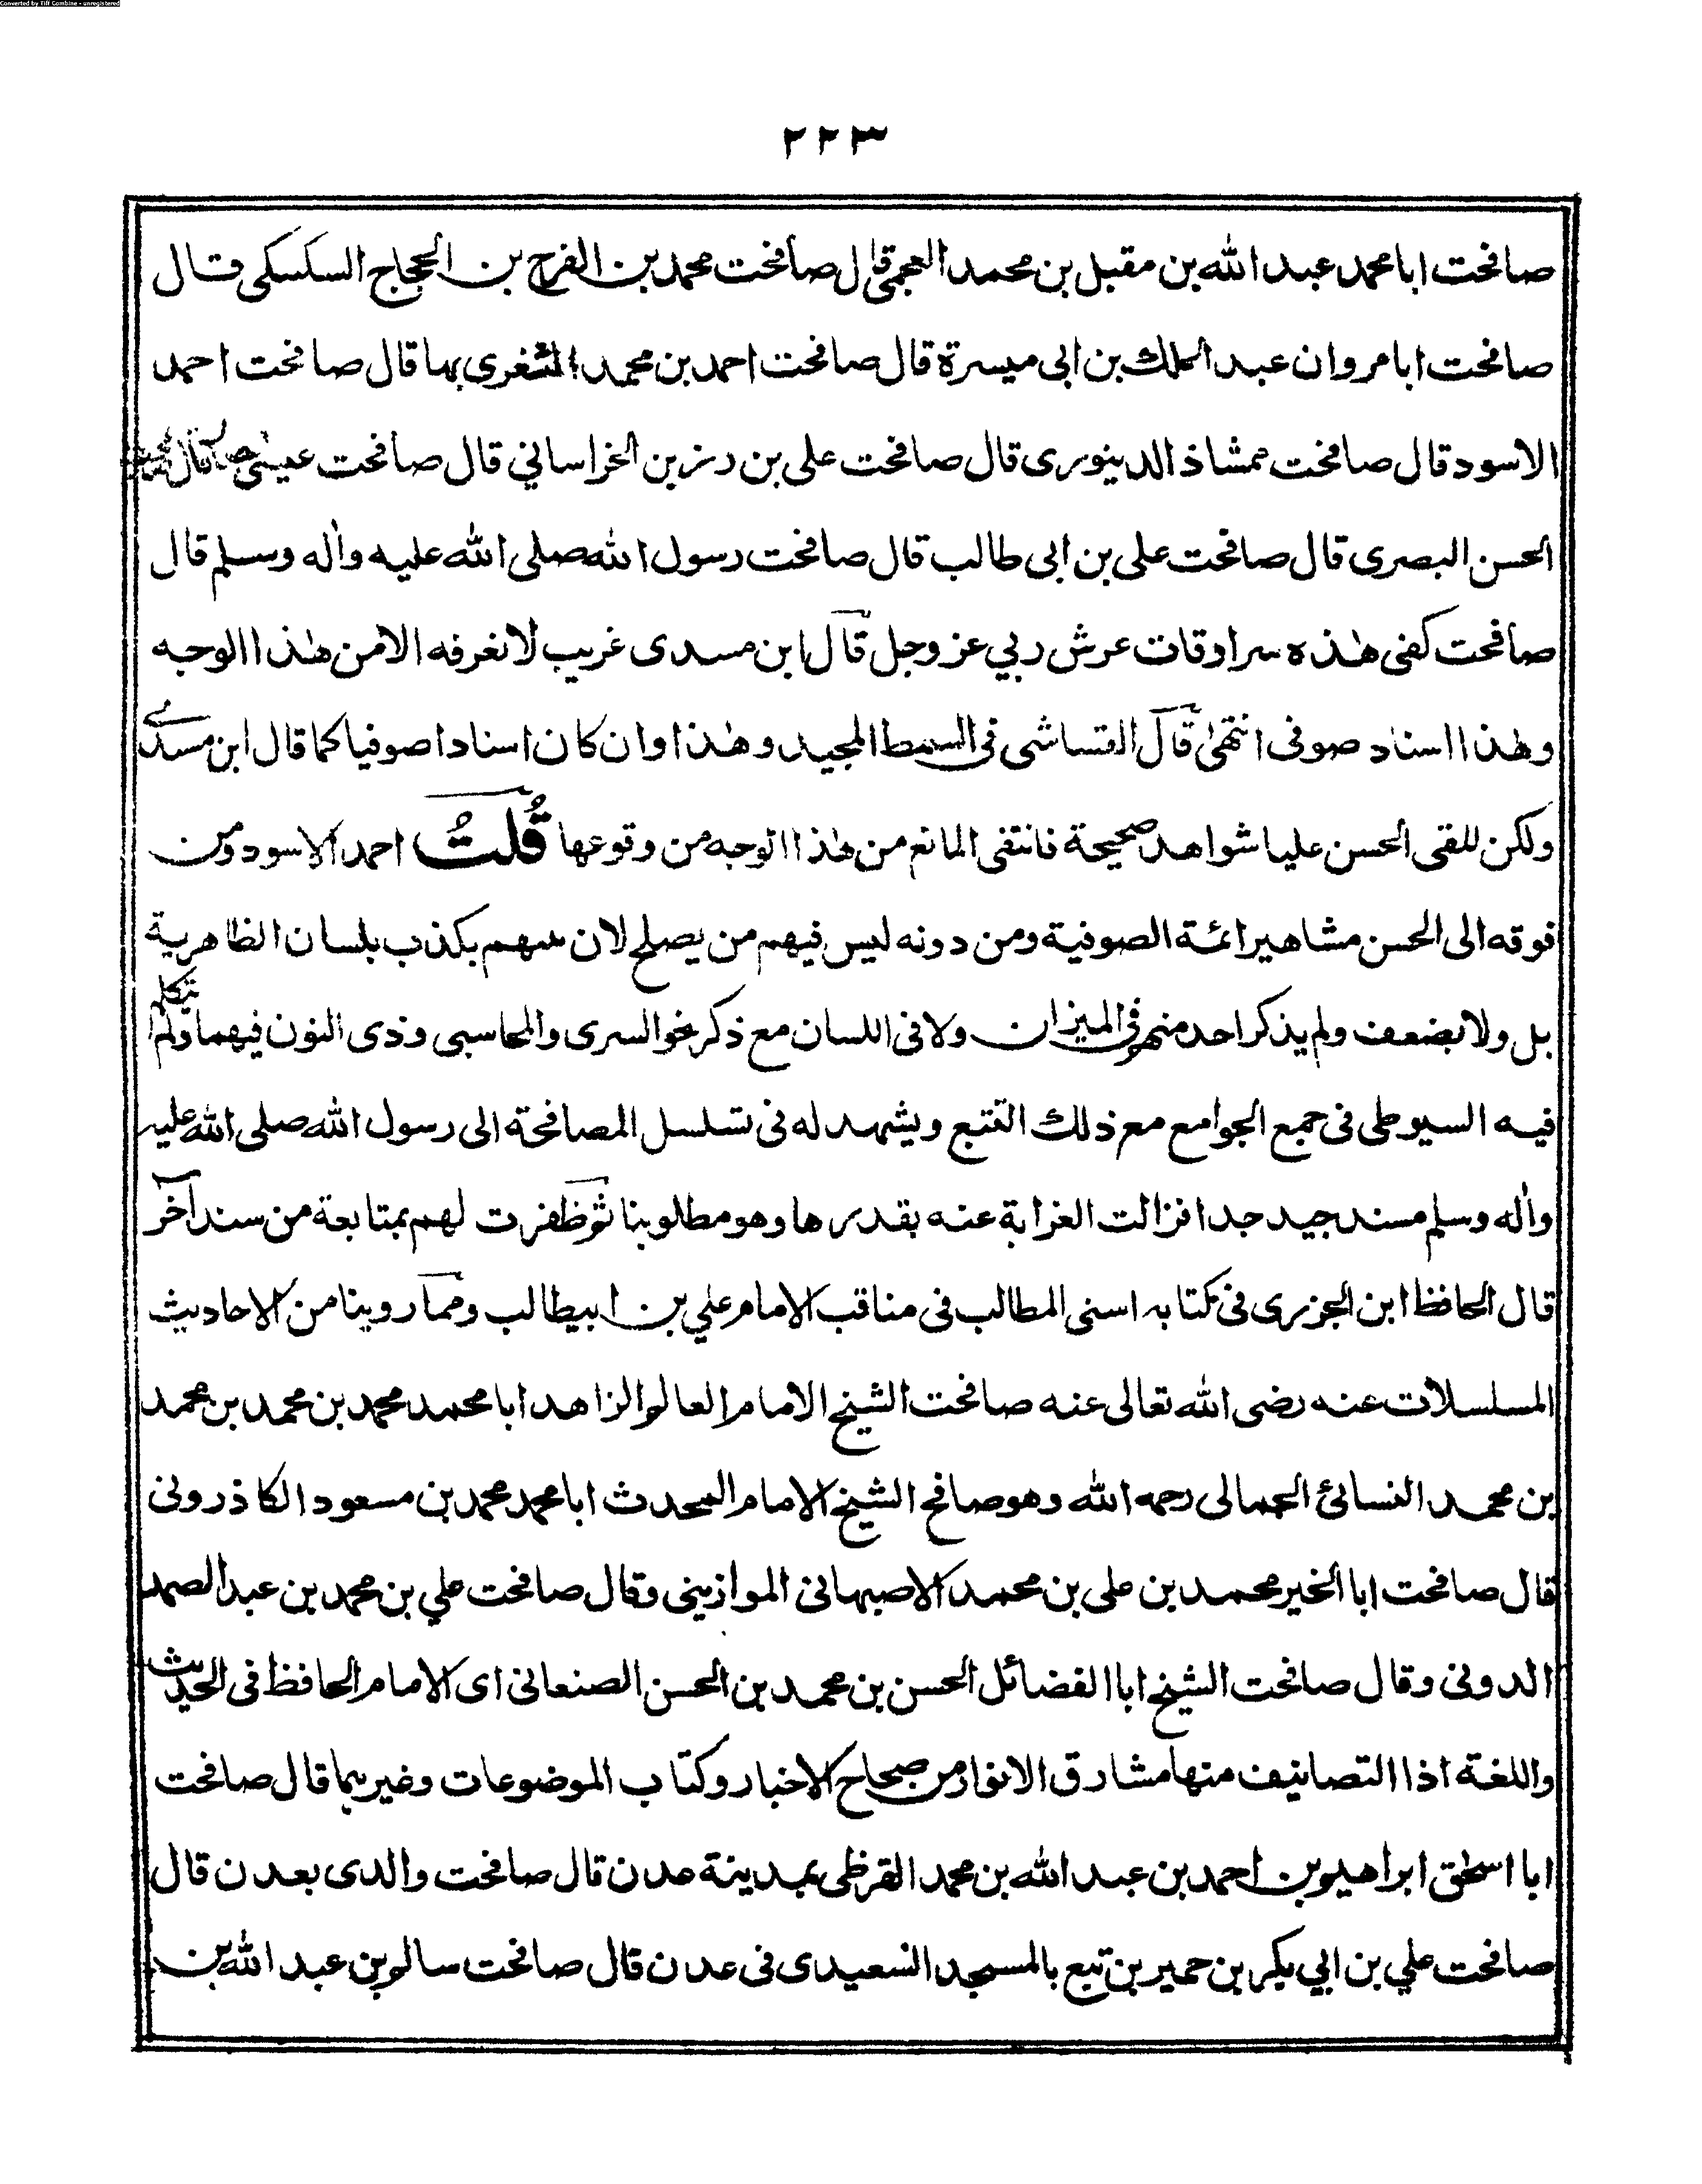 Converted by Tiff Combine - unregistered
٢٢٣
صافحت ابا محمد عبد الله بن مقبل بن محمد العجمی قال صافحت محمد بن الفرج بن الحجاج السکسکی قال
صافحت ابا مروان عبد الملك بن ابی میسرة قال صافحت احمد بن محمد الثغری بها قال صافحت احمد
الاسود قال صافحت ممشاذ الدینوری قال صافحت علی بن رزین الخراسانی قال صافحت عیسی قال صافحت
الحسن البصری قال صافحت علی بن ابی طالب قال صافحت رسول الله صلی الله علیه واٰله وسلم قال
صافحت کفی هٰذه سرادقات عرش ربي عز وجل قال ابن مسدی غریب لا نعرفه الا من هٰذا الوجه
وهٰذا اسناد صوفی انتهیٰ قال القشاشی فی السمط المجید وهٰذا وان کان اسنادا صوفیا کما قال ابن مسدی
ولکن للقی الحسن علیا شواهد صحیحة فانتفی المانع من هٰذا الوجه من وقوعها قُلتُ احمد الاسود ومن
فوقه الی الحسن مشاهیر ائمة الصوفیة ومن دونه لیس فیهم من یصلح لان یتهم بکذب بلسان الظاهریة
بل ولا بضعف ولم یذکر احد منهم فی المیزان ولا فی اللسان مع ذکر نحو السری والمحاسبی وذی النون فیهما ولم یتکلم
فیه السیوطی فی جمع الجوامع مع ذلك التتبع ویشهد له فی تسلسل المصافحة الی رسول الله صلی الله علیه
واٰله وسلم مسند جید جدا فزالت الغرابة عنه بقدرها وهو مطلوبنا ثم ظفرت لهم بمتابعة من سند آخر
قال الحافظ ابن الجزری فی کتابه اسنی المطالب فی مناقب الامام علي بن ابیطالب ومما روینا من الاحادیث
المسلسلات عنه رضی الله تعالی عنه صافحت الشیخ الامام العالم الزاهد ابا محمد محمد بن محمد بن محمد
بن محمد النسائئ الجمالی رحمه الله وهو صافح الشیخ الامام المحدث ابا محمد محمد بن مسعود الکاذرونی
قال صافحت ابا الخیر محمد بن علی بن محمد الاصبهانی الموازینی وقال صافحت علي بن محمد بن عبد الصمد
الدونی وقال صافحت الشیخ ابا الفضائل الحسن بن محمد بن الحسن الصنعانی ای الامام الحافظ فی الحدیث
واللغة اذا التصانیف منها مشارق الانوار من صحاح الاخبار وکتاب الموضوعات وغیرهما قال صافحت
ابا اسحٰق ابراهیم بن احمد بن عبد الله بن محمد القرظی بمدینة عدن قال صافحت والدی بعدن قال
صافحت علي بن ابي بکر بن حمیر بن تبع بالمسجد السعیدی فی عدن قال صافحت سالم بن عبد الله بن